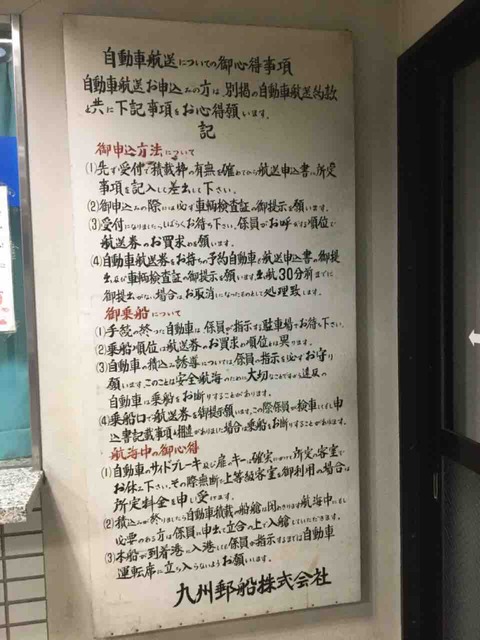 自動車航送についての御心得事項
自動車航送お申込みの方は別掲の自動車航送約款
と共に下記事項をお心得願います。
記
御申込方法について
(1)先ず受付で積載枠の有無を確めてから航送申込書へ所定
事項を記入して差出して下さい。
(2)御申込みの際には必ず車輌検査証の御提示を願います。
(3)受付になりましたらしばらくお待ち下さい。係員がお呼びする順位で
航送券のお買求めを願います。
(4)自動車航送券をお持ちの予約自動車も航送申込書の御提
出及び車輌検査証の御提示を願います。出航30分前までに
御提出がない場合はお取消になったものとして処理致します。
御乗船について
(1)手続の終った自動車は係員が指示する駐車場でお待ち下さい。
(2)乗船順位は航送券のお買求めの順位とは異ります。
(3)自動車の積込み誘導については係員の指示を必ずお守り
願います。このことは安全航海のために大切なことですから違反の
自動車は乗船をお断りすることがあります。
(4)乗船口で航送券を御提示願います。この際係員が検車しますし申
込書記載事項と相違がありました場合は乗船をお断りすることがあります。
航海中の御心得
(1)自動車のサイドブレーキ及び扉、キーは確実にかけて所定の客室で
お休み下さい。その際無断で上等級客室を御利用の場合は
所定料金を申し受けます。
(2)積込みが終りましたら自動車積載の船艙は閉めきります航海中にもし
必要のある方は係員に申出て立合の上で入艙していただきます。
(3)本船が到着港に入港しても係員が指示するまでは自動車
運転席に立ち入らないようお願いします。
九州郵船株式会社